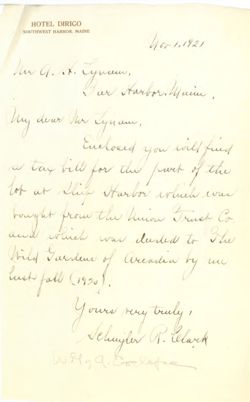 HOTEL DIRIGO
SOUTHWEST HARBOR, MAINE
Nov 1, 1921
Mr A. H. Lynam,
Bar Harbor Maine.
My dear Mr Lynam.
Enclosed you will find
a tax bill for the part of the
lot at Ship Harbor which was
bought from the Union Trust Co
and which was deeded to The
Wild Gardens of Acadia by me
last fall (1920).
Yours very truly,
Schuyler R. Clark